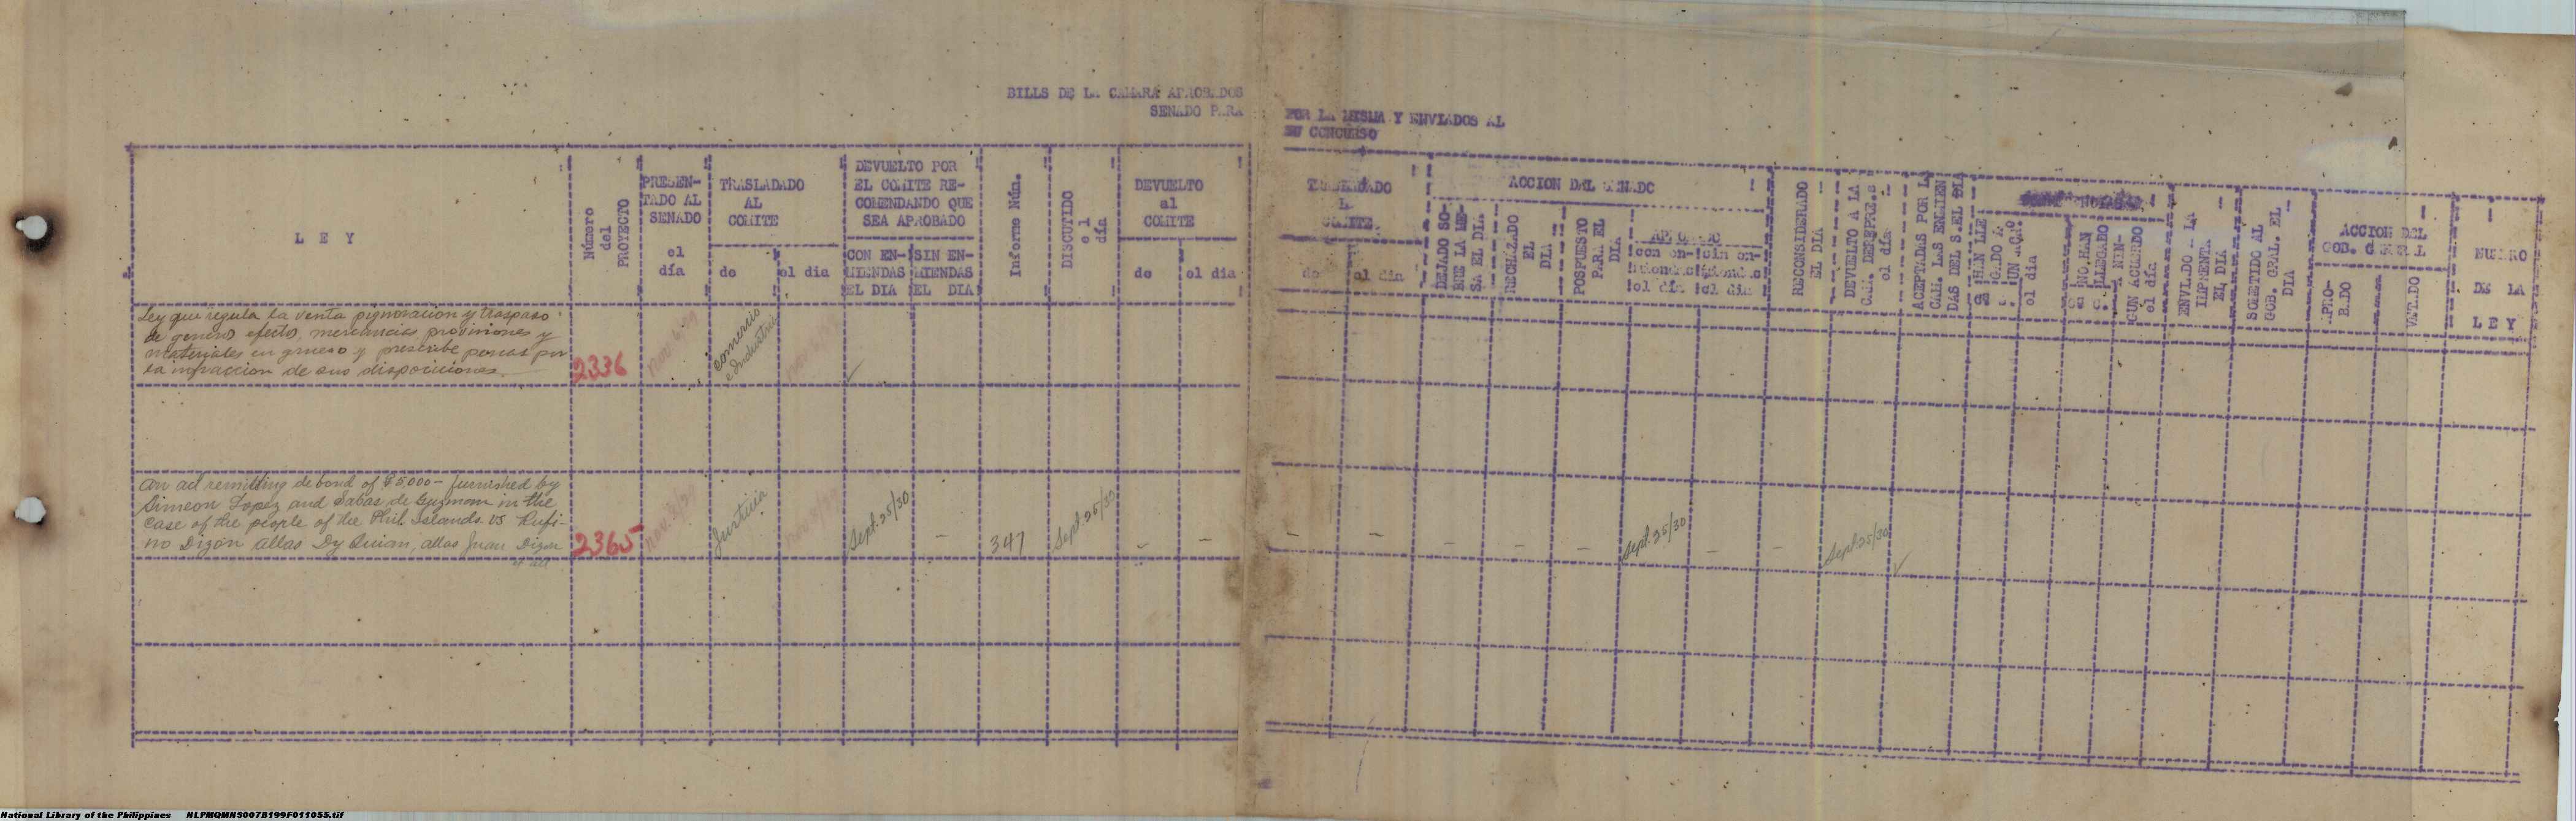 BILLS DE LA CAMARA APROBADOS POR LA MISMA Y ENVIADOS AL
SENADO PARA SU CONCURSO
L E Y
Número del PROYECTO
PRESEN-
TADO AL
SENADO
el
día
TRASLADADO
AL
COMITE
de
el dia
DEVUELTO POR
EL COMITE RE-
COMENDANDO QUE
SEA APROBADO
CON EN-
MIENDAS
EL DIA
SIN EN-
MIENDAS
EL DIA
Informe Núm.
DISCUTIDO
el
día
DEVUELTO
al
COMITE
de
el dia
COMITE
de
el día
ACCION DEL SENADO
DEJADO SO-
BRE LA ME-
SA EL DIA
RECHAZADO
EL
DIA
POSPUESTO
PARA EL
DIA
con en-
el día
sin en-
el día
RECONSIDERADO
EL DIA
DEVUELTO A LA
el día
ACEPTADAS POR L
CAM. LAS ENMIEN
DAS DEL S. EL DIA
HAN LLE
GADO A
el día
NO HAN
LLEGADO
A NIN-
GUN ACUERDO
el día
ENVIADO A LA
IMPRENTA
EL DIA
SOMETIDO AL
GOB. GRAL. EL
DIA
ACCION DEL
APRO-
BADO
VETADO
NUMERO
DE LA
LEY
Ley que regula la venta pignoracion y traspaso
de generos efectos, mercancias provisiones y
materiales en grueso y prescribe penas por
la infraccion de sus disposiciones.
2336
Nov. 6, 29
Comercio
e Industria
✓
An act remitting de bond of ₱5,000- furnished by
Simeon Lopez and Sabas de Guzman in the
case of the people of the Phil. Islands vs Rufi-
no Dizon allas Dy Quian, allas Juan Dizon
et all
2365
Nov. 8, 29
Justicia
Sept. 25/30
-
347
Sept. 25/30
-
-
-
-
-
-
-
Sept. 25/30
-
-
Sept 25/30
✓
National Library of the Philippines NLPMQMNS007B199F011055.tif